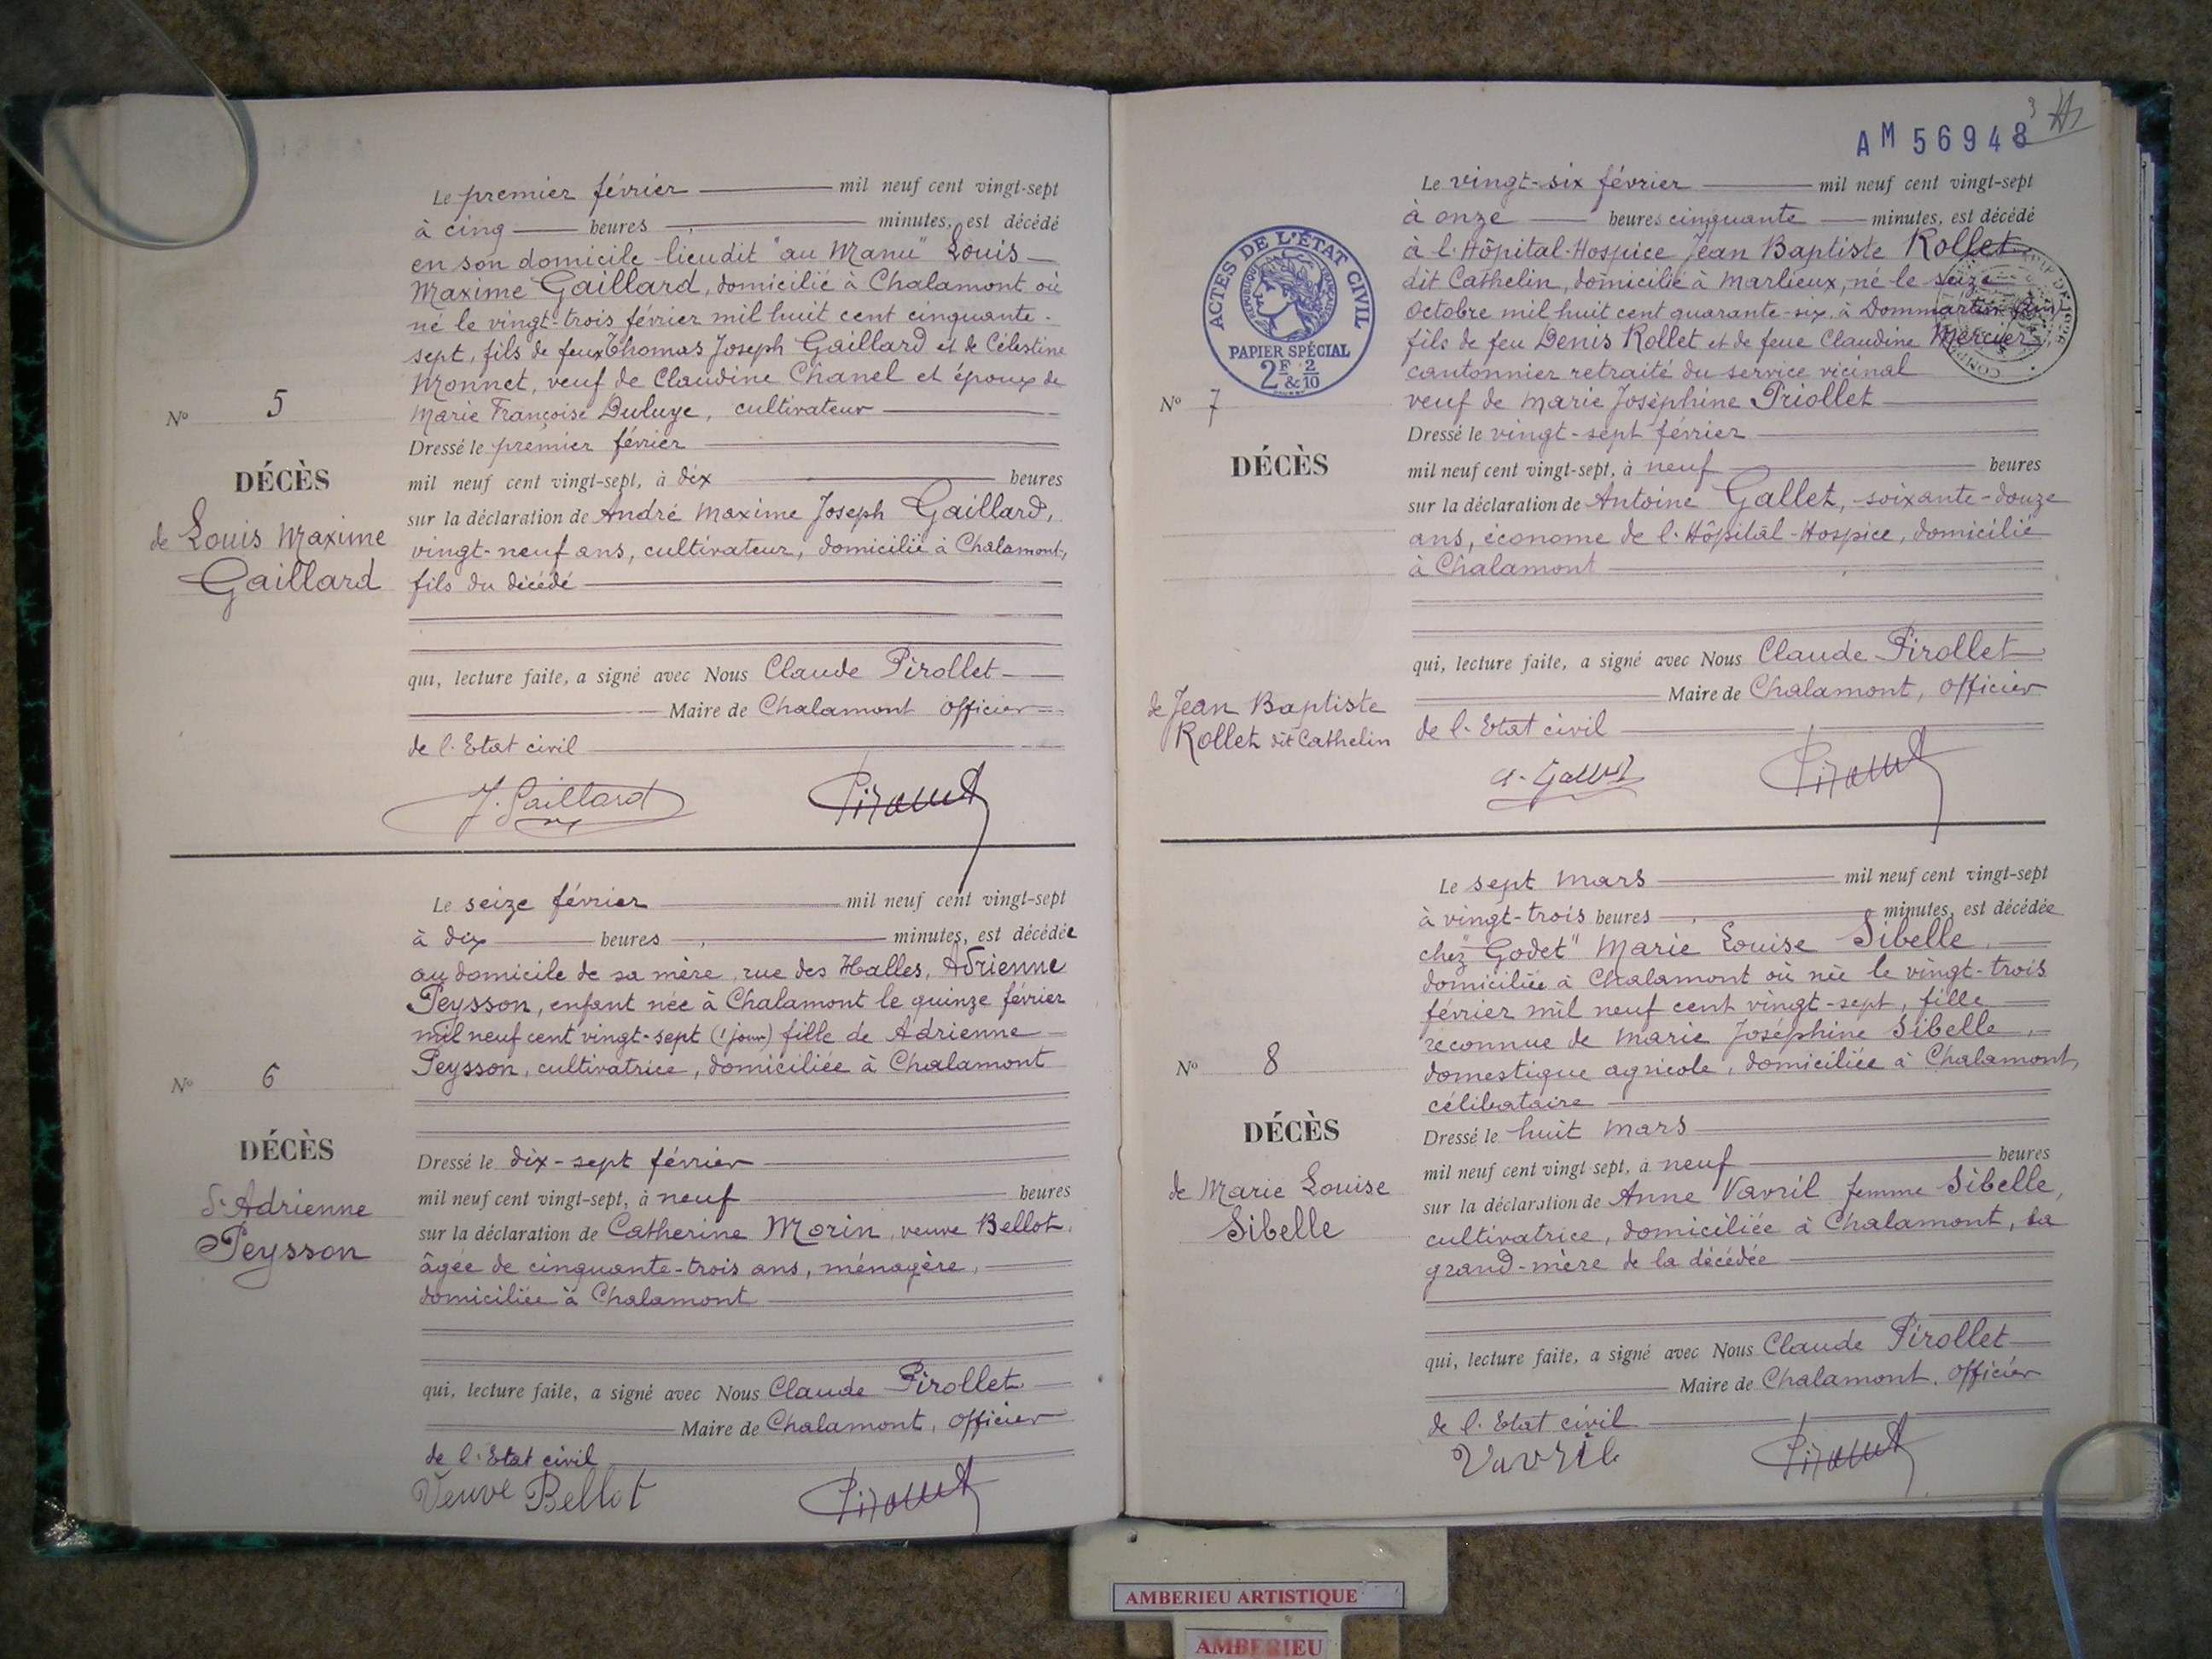 Le premier février mil neuf cent vingt-sept
à cinq heures minutes, est décédé
en son domicile lieudit "au Manu" Louis
Maxime Gaillard, domicilié à Chalamont où
né le vingt-trois février mil huit cent cinquante-
sept, fils de feux Thomas Joseph Gaillard et de Célestine
Monnet, veuf de Claudine Chanel et époux de
Marie Françoise Duluye, cultivateur
Nº 5
Dressé le premier février
DÉCÈS
mil neuf cent vingt-sept, à dix heures
de Louis Maxime
Gaillard
sur la déclaration de André Maxime Joseph Gaillard,
vingt-neuf ans, cultivateur, domicilié à Chalamont,
fils du décédé
qui, lecture faite, a signé avec Nous Claude Pirollet
Maire de Chalamont Officier
de l'Etat civil
J. Gaillard
Pirollet
Le seize février mil neuf cent vingt-sept
à dix heures minutes, est décédée
au domicile de sa mère, rue des Halles, Adrienne
Peysson, enfant née à Chalamont le quinze février
mil neuf cent vingt-sept (1 jour) fille de Adrienne
Peysson, cultivatrice, domiciliée à Chalamont
Nº 6
DÉCÈS
d'Adrienne
Peysson
Dressé le dix-sept février
mil neuf cent vingt-sept, à neuf heures
sur la déclaration de Catherine Morin, veuve Bellot,
âgée de cinquante-trois ans, ménagère,
domiciliée à Chalamont
qui, lecture faite, a signé avec Nous Claude Pirollet
Maire de Chalamont, Officier
de l'Etat civil
Veuve Bellot
Pirollet
AM 56948
3
ACTES DE L'ÉTAT CIVIL
RÉPUBLIQUE FRANÇAISE
PAPIER SPÉCIAL
2F & 2/10
Le vingt-six février mil neuf cent vingt-sept
à onze heures cinquante minutes, est décédé
à l'Hôpital-Hospice Jean Baptiste Rollet
dit Cathelin, domicilié à Marlieux, né le seize
Octobre mil huit cent quarante-six, à Dommartin
fils de feu Denis Rollet et de feue Claudine Mercier
cantonnier retraité du service vicinal
veuf de Marie Joséphine Priollet
Nº 7
Dressé le vingt-sept février
DÉCÈS
mil neuf cent vingt-sept, à neuf heures
sur la déclaration de Antoine Gallet, soixante-douze
ans, économe de l'Hôpital-Hospice, domicilié
à Chalamont
qui, lecture faite, a signé avec Nous Claude Pirollet
Maire de Chalamont, Officier
de Jean Baptiste
Rollet dit Cathelin
de l'Etat civil
A. Gallet
Pirollet
Le sept mars mil neuf cent vingt-sept
à vingt-trois heures minutes, est décédée
chez "Godet" Marie Louise Sibelle,
domiciliée à Chalamont où née le vingt-trois
février mil neuf cent vingt-sept, fille
reconnue de Marie Joséphine Sibelle,
domestique agricole, domiciliée à Chalamont,
célibataire
Nº 8
DÉCÈS
de Marie Louise
Sibelle
Dressé le huit mars
mil neuf cent vingt sept, à neuf heures
sur la déclaration de Anne Vavril femme Sibelle,
cultivatrice, domiciliée à Chalamont, la
grand-mère de la décédée
qui, lecture faite, a signé avec Nous Claude Pirollet
Maire de Chalamont, Officier
de l'Etat civil
Vavril
Pirollet
AMBERIEU ARTISTIQUE
AMBERIEU